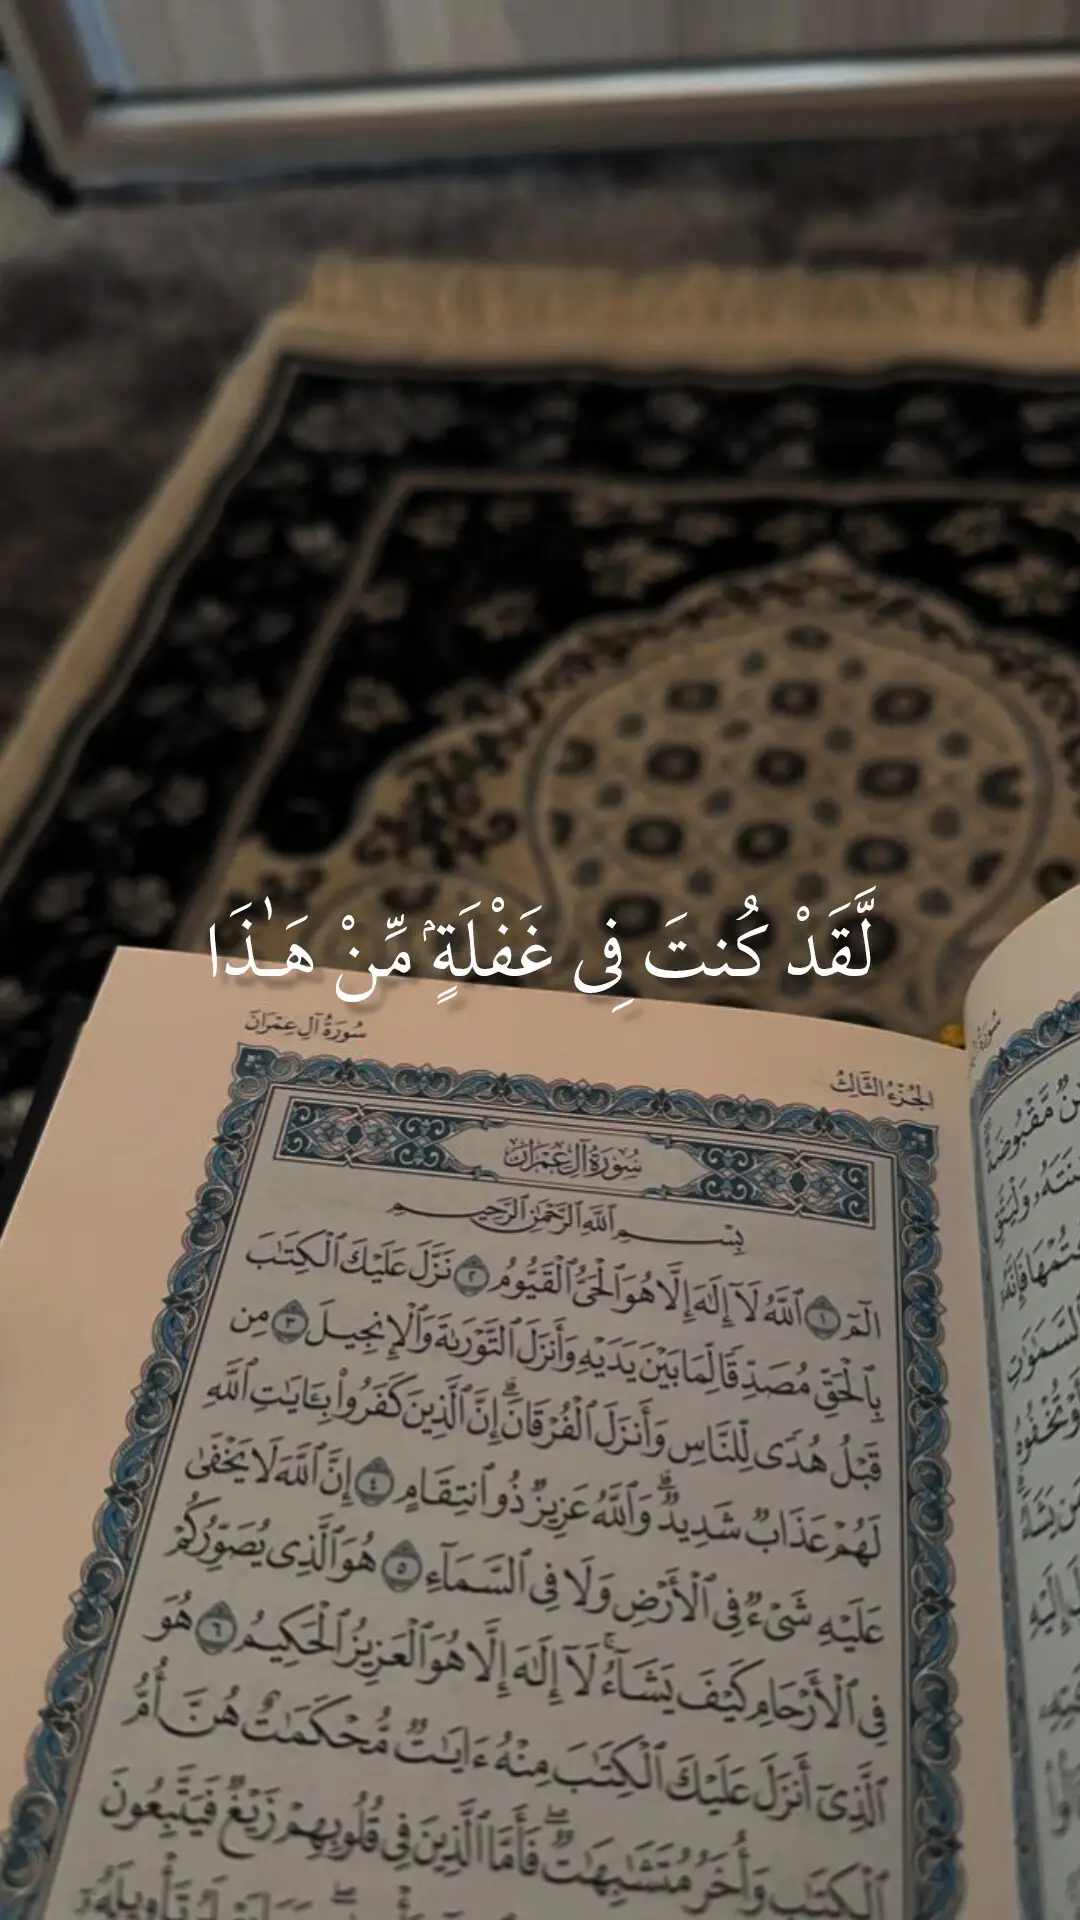 لَّقَدْ كُنتَ فِى غَفْلَةٍۢ مِّنْ هَـٰذَا
سُورَةُ آلِ عِمْرَانَ
الجُزْءُ الثَّالِثُ
سُورَةُ آلِ عِمْرَانَ
بِسْمِ ٱللَّهِ ٱلرَّحْمَٰنِ ٱلرَّحِيمِ
الٓمٓ ١ ٱللَّهُ لَآ إِلَٰهَ إِلَّا هُوَ ٱلْحَىُّ ٱلْقَيُّومُ ٢ نَزَّلَ عَلَيْكَ ٱلْكِتَٰبَ
بِٱلْحَقِّ مُصَدِّقًا لِّمَا بَيْنَ يَدَيْهِ وَأَنزَلَ ٱلتَّوْرَىٰةَ وَٱلْإِنجِيلَ ٣ مِن
قَبْلُ هُدًى لِّلنَّاسِ وَأَنزَلَ ٱلْفُرْقَانَۗ إِنَّ ٱلَّذِينَ كَفَرُوا۟ بِـَٔايَٰتِ ٱللَّهِ
لَهُمْ عَذَابٌ شَدِيدٌۗ وَٱللَّهُ عَزِيزٌ ذُو ٱنتِقَامٍ ٤ إِنَّ ٱللَّهَ لَا يَخْفَىٰ
عَلَيْهِ شَىْءٌ فِى ٱلْأَرْضِ وَلَا فِى ٱلسَّمَآءِ ٥ هُوَ ٱلَّذِى يُصَوِّرُكُمْ
فِى ٱلْأَرْحَامِ كَيْفَ يَشَآءُۚ لَآ إِلَٰهَ إِلَّا هُوَ ٱلْعَزِيزُ ٱلْحَكِيمُ ٦ هُوَ
ٱلَّذِىٓ أَنزَلَ عَلَيْكَ ٱلْكِتَٰبَ مِنْهُ ءَايَٰتٌ مُّحْكَمَٰتٌ هُنَّ أُمُّ
ٱلْكِتَٰبِ وَأُخَرُ مُتَشَٰبِهَٰتٌۖ فَأَمَّا ٱلَّذِينَ فِى قُلُوبِهِمْ زَيْغٌ فَيَتَّبِعُونَ